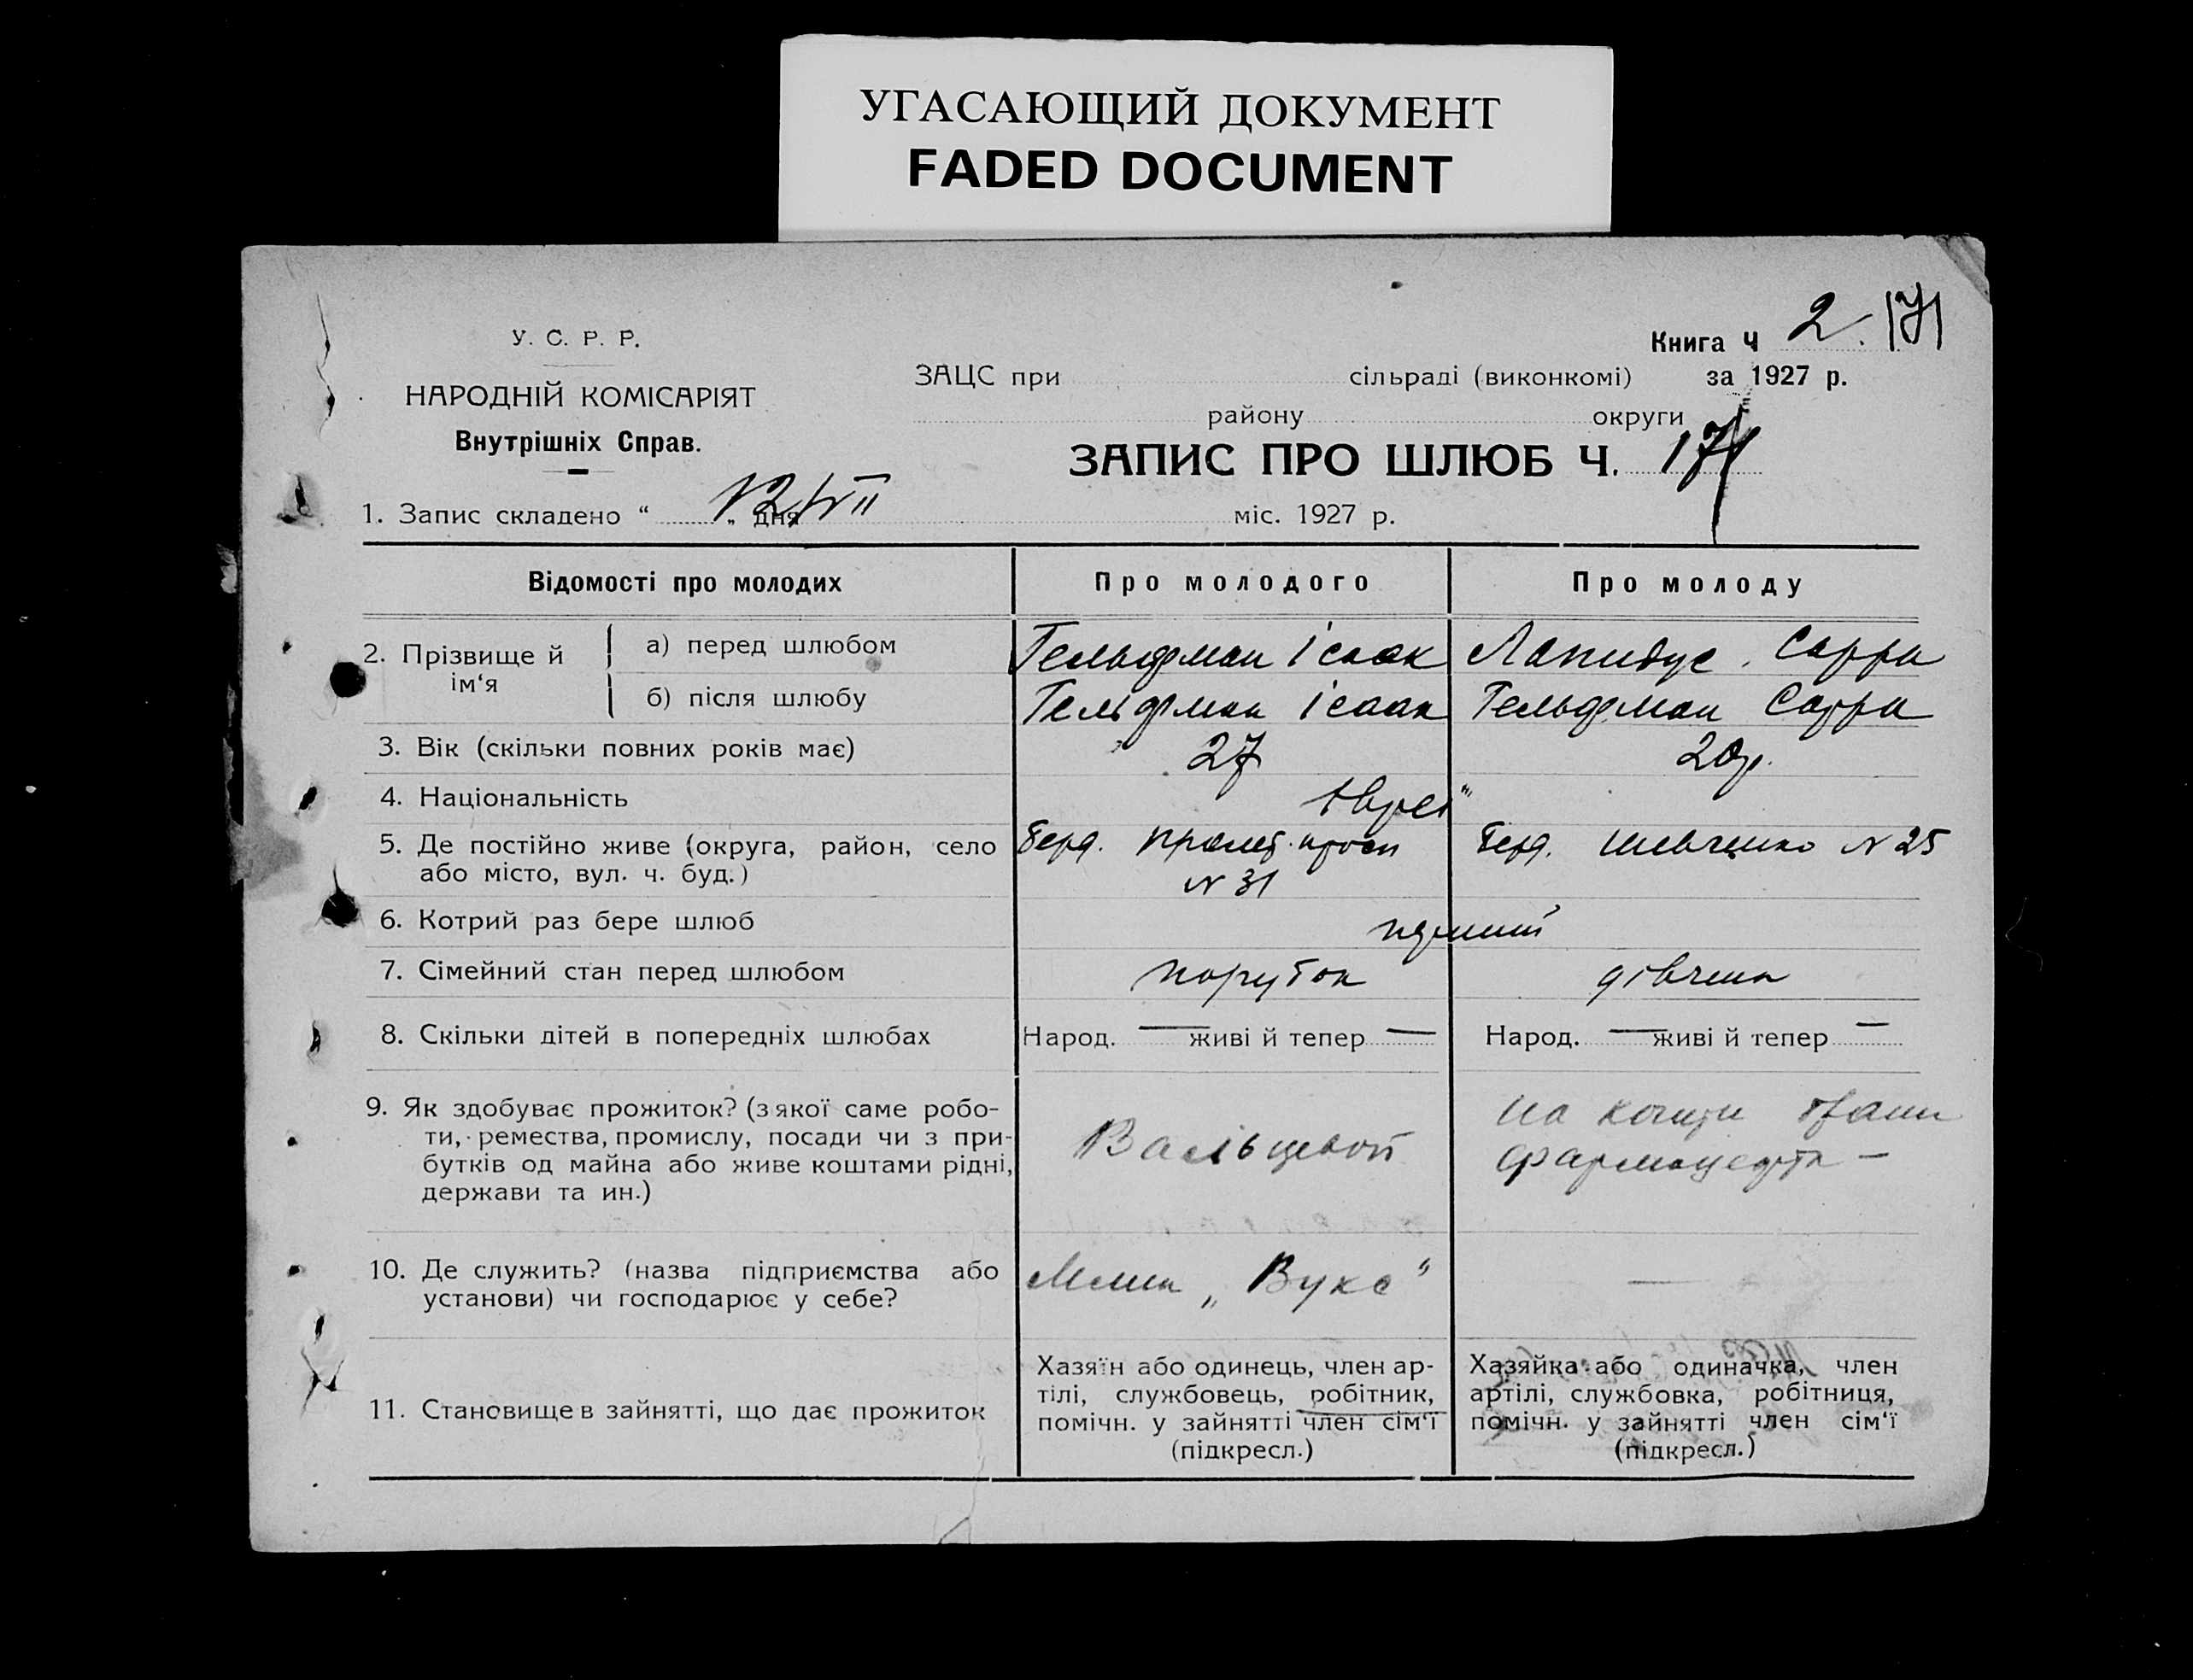 УГАСАЮЩИЙ ДОКУМЕНТ
FADED DOCUMENT
У. С. Р. Р.
НАРОДНІЙ КОМІСАРІЯТ
Внутрішніх Справ.
Книга Ч 2. 171
ЗАЦС при сільраді (виконкомі) за 1927 р.
району округи
ЗАПИС ПРО ШЛЮБ Ч. 171
1. Запис складено “ 12/VII „ дня міс. 1927 р.
Відомості про молодих Про молодого Про молоду
2. Прізвище й ім‘я
а) перед шлюбом Гельфман Ісаак Лапидус Сарра
б) після шлюбу Гельфман Ісаак Гельфман Сарра
3. Вік (скільки повних років має) 27 20 р.
4. Національність Євреї
5. Де постійно живе (округа, район, село Берд. Пролет. Берд. Шевченко N 25
або місто, вул. ч. буд.) N 31
6. Котрий раз бере шлюб перший
7. Сімейний стан перед шлюбом парубок дівчина
8. Скільки дітей в попередніх шлюбах Народ. — живі й тепер — Народ. — живі й тепер —
9. Як здобуває прожиток? (з якої саме робо-
ти, ремества, промислу, посади чи з при-
бутків од майна або живе коштами рідні,
держави та ин.)
Вальцевой
на кошти
фармацевта —
10. Де служить? (назва підприємства або
установи) чи господарює у себе?
Млин „Вукс“ —
11. Становище в зайнятті, що дає прожиток
Хазяїн або одинець, член ар-
тілі, службовець, робітник,
помічн. у зайнятті член сім‘ї
(підкресл.)
Хазяйка або одиначка, член
артілі, службовка, робітниця,
помічн. у зайнятті член сім‘ї
(підкресл.)